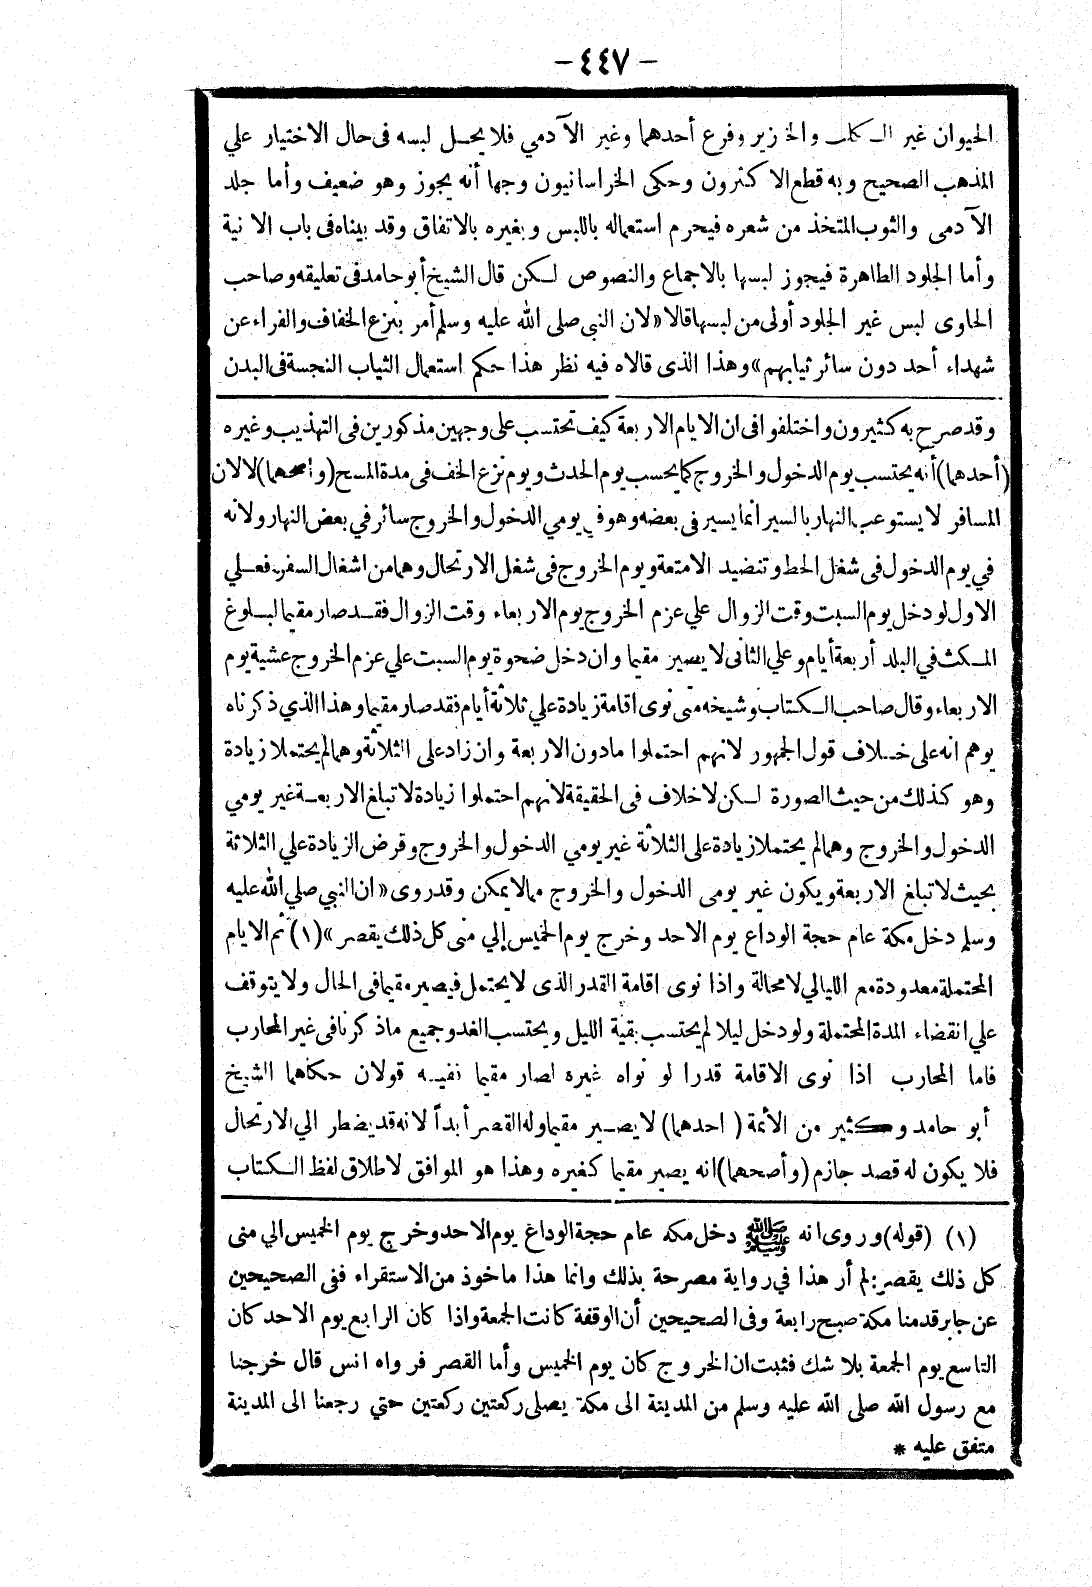 - ٤٤٧ -
الحيوان غير الكلب والخنزير وفرع أحدهما وغير الآدمي فلا يحل لبسه فى حال الاختيار علي
المذهب الصحيح وبه قطع الاكثرون وحكى الخراسانيون وجها أنه يجوز وهو ضعيف وأما جلد
الآدمى والثوب المتخذ من شعره فيحرم استعماله باللبس وبغيره بالاتفاق وقد بيناه فى باب الانية
وأما الجلود الطاهرة فيجوز لبسها بالاجماع والنصوص لكن قال الشيخ أبو حامد فى تعليقه وصاحب
الحاوى لبس غير الجلود أولى من لبسها قالا «لان النبي صلى الله عليه وسلم أمر بنزع الخفاف والفراء عن
شهداء أحد دون سائر ثيابهم» وهذا الذى قالاه فيه نظر هذا حكم استعمال الثياب النجسة فى البدن
وقد صرح به كثيرون واختلفوا فى ان الايام الاربعة كيف تحتسب على وجهين مذكورين فى التهذيب وغيره
(أحدهما) أنه يحتسب يوم الدخول والخروج كما يحسب يوم الحدث ويوم نزع الخف فى مدة المسح (وأصحهما) لا لان
المسافر لا يستوعب النهار بالسير انما يسير فى بعضه وهو في يومي الدخول والخروج سائر في بعض النهار ولانه
في يوم الدخول فى شغل الحط وتنضيد الامتعة ويوم الخروج فى شغل الارتحال وهما من اشغال السفر. فعلي
الاول لو دخل يوم السبت وقت الزوال علي عزم الخروج يوم الاربعاء وقت الزوال فقد صار مقيما لبلوغ
المكث في البلد أربعة أيام وعلي الثانى لا يصير مقيما وان دخل ضحوة يوم السبت علي عزم الخروج عشية يوم
الاربعاء وقال صاحب الكتاب وشيخه متى نوى اقامة زيادة علي ثلاثة أيام فقد صار مقيما وهذا الذي ذكرناه
يوهم انه على خلاف قول الجمهور لانهم احتملوا مادون الاربعة وان زاد على الثلاثة وهما لم يحتملا زيادة
وهو كذلك من حيث الصورة لكن لا خلاف فى الحقيقة لانهم احتملوا زيادة لا تبلغ الاربعة غير يومي
الدخول والخروج وهما لم يحتملا زيادة على الثلاثة غير يومي الدخول والخروج وفرض الزيادة علي الثلاثة
بحيث لا تبلغ الاربعة ويكون غير يومى الدخول والخروج مما لا يمكن وقد روى «ان النبي صلي الله عليه
وسلم دخل مكة عام حجة الوداع يوم الاحد وخرج يوم الخميس إلي منى كل ذلك يقصر» (١) ثم الايام
المحتملة معدودة مع الليالي لا محالة واذا نوى اقامة القدر الذى لا يحتمل فيصير مقيما فى الحال ولا يتوقف
علي انقضاء المدة المحتملة ولو دخل ليلا لم يحتسب بقية الليل ويحتسب الغد وجميع ماذكرنا فى غير المحارب
فاما المحارب اذا نوى الاقامة قدرا لو نواه غيره لصار مقيما ففيه قولان حكاهما الشيخ
أبو حامد وكثير من الأئمة (احدهما) لا يصير مقيما وله القصر أبداً لانه قد يضطر الي الارتحال
فلا يكون له قصد جازم (وأصحهما) انه يصير مقيما كغيره وهذا هو الموافق لاطلاق لفظ الكتاب
(١) (قوله) وروى انه ﷺ دخل مكه عام حجة الوداغ يوم الاحد وخرج يوم الخميس الي منى
كل ذلك يقصر: لم أر هذا في رواية مصرحة بذلك وانما هذا ماخوذ من الاستقراء ففى الصحيحين
عن جابر قدمنا مكة صبح رابعة وفى الصحيحين أن الوقفة كانت الجمعة واذا كان الرابع يوم الاحد كان
التاسع يوم الجمعة بلا شك فثبت ان الخروج كان يوم الخميس وأما القصر فرواه انس قال خرجنا
مع رسول الله صلى الله عليه وسلم من المدينة الى مكة يصلى ركعتين ركعتين حتي رجعنا الى المدينة
متفق عليه *